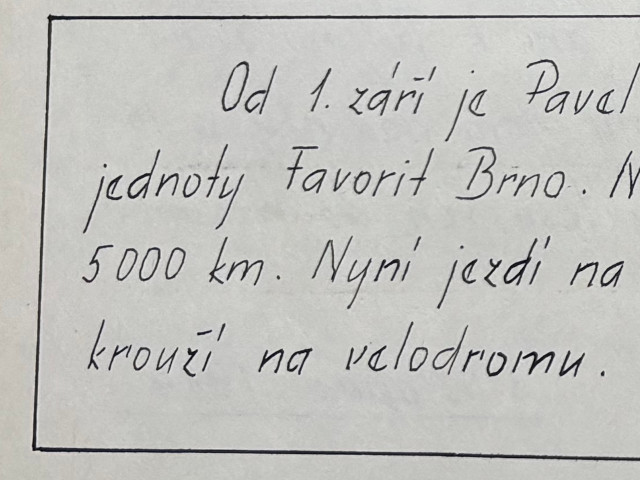 Od 1. září je Pavel
jednoty Favorit Brno.
5000 km. Nyní jezdí na
krouží na velodromu.